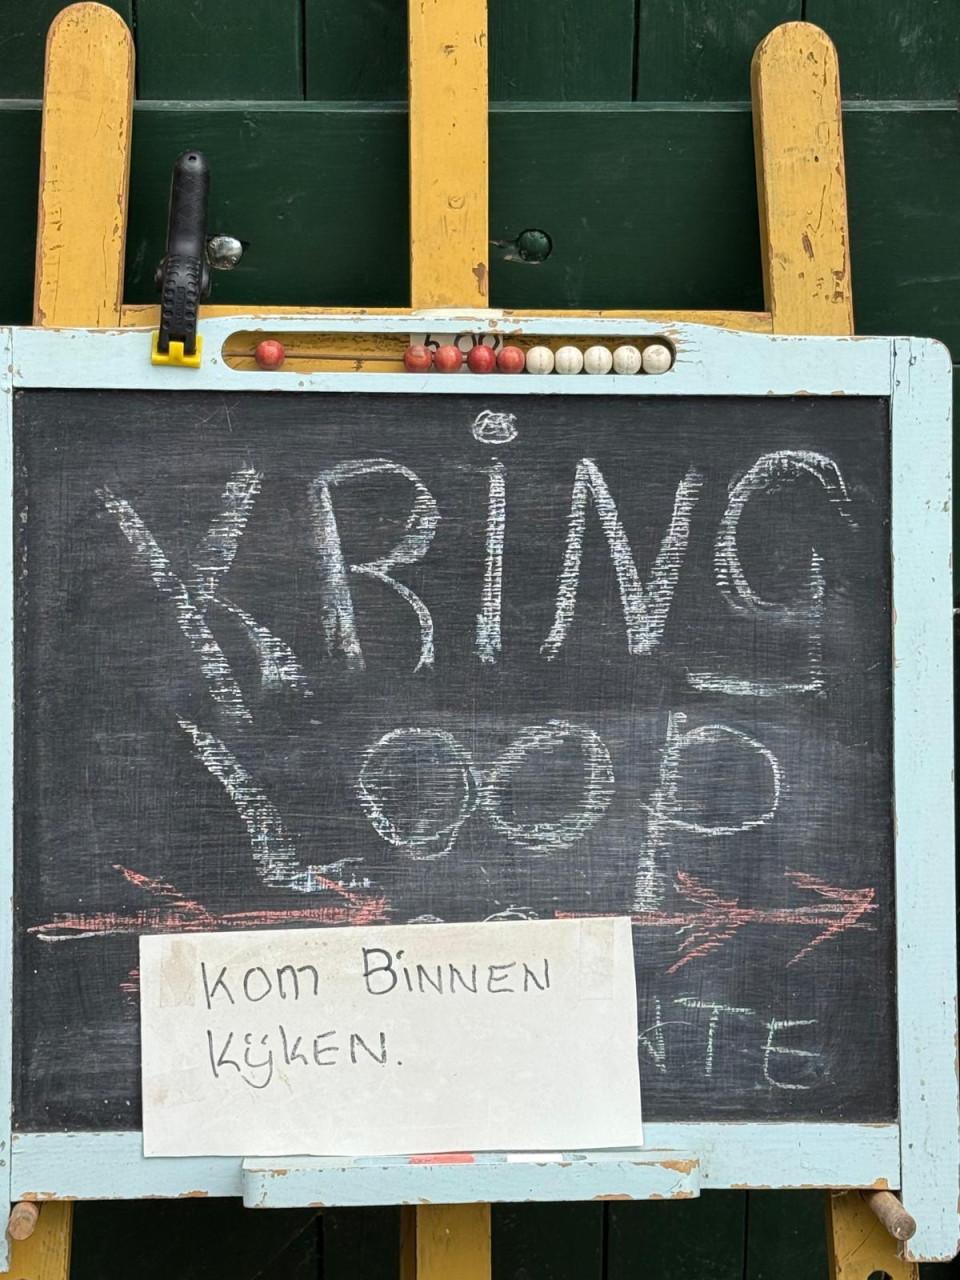 KRiNg
Loop
Kom BiNNEN
KijkEN.
NTE